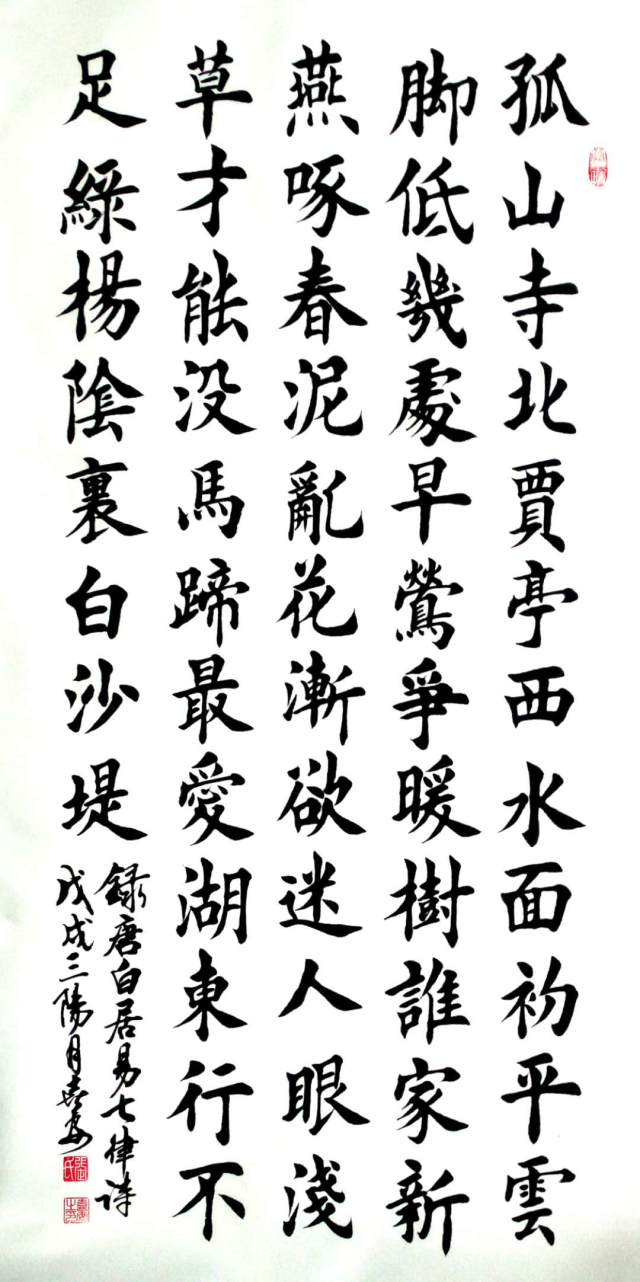 孤山寺北賈亭西水面初平雲
脚低幾處早鶯爭暖樹誰家新
燕啄春泥亂花漸欲迷人眼淺
草才能没馬蹄最愛湖東行不
足綠楊陰裏白沙堤
録唐白居易七律詩
戊戌三陽月